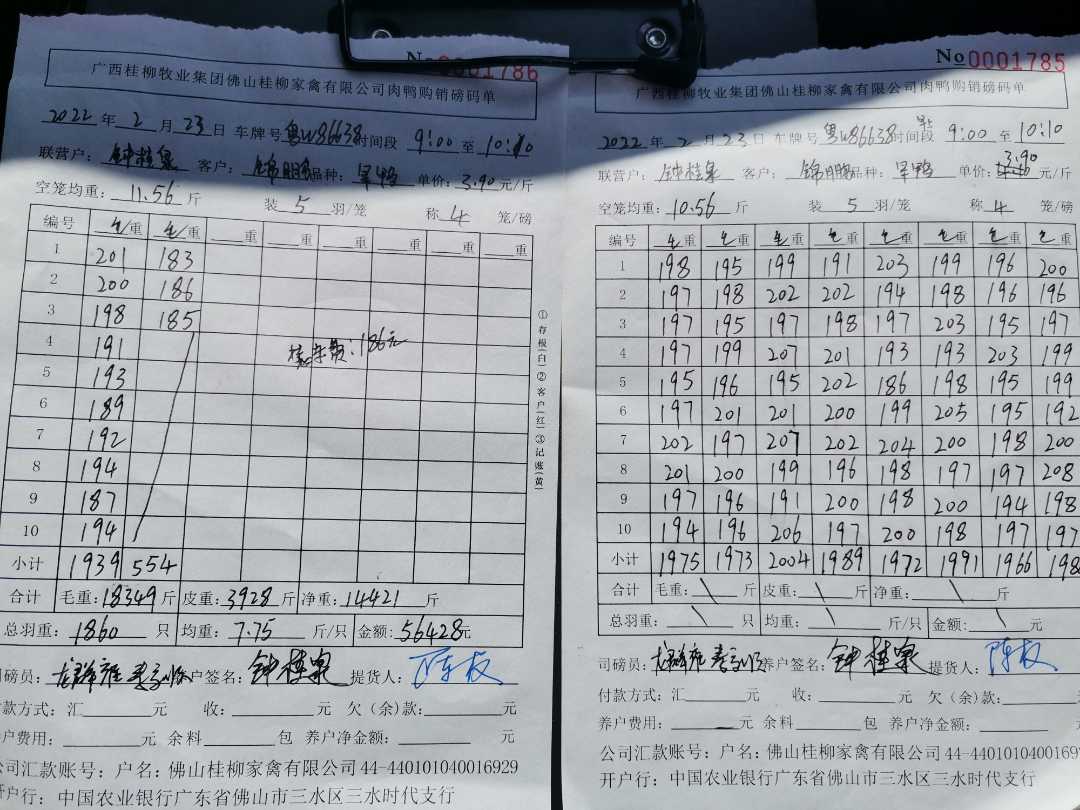 No 0001786
广西桂柳牧业集团佛山桂柳家禽有限公司肉鸭购销磅码单
2022 年 2 月 23 日 车牌号 粤W86638 时间段 9:00 至 10:10
联营户: 钟桂泉 客户: 锦鹏 品种: 旱鸭 单价: 3.90 元/斤
空笼均重: 11.56 斤 装 5 羽/笼 称 4 笼/磅
编号 毛/重 毛/重 重 重 重 重 重 重
1 201 183
2 200 186
3 198 185
4 191
5 193
6 189
7 192
8 194
9 187
10 194
小计 1939 554
:186元
①存根(白)②客户(红)③记账(黄)
合计 毛重: 18349 斤 皮重: 3928 斤 净重: 14421 斤
总羽重: 1860 只 均重: 7.75 斤/只 金额: 56428 元
司磅员: 户签名: 钟桂泉 提货人: 陈权
付款方式: 汇 元 收: 元 欠(余)款: 元
户费用: 元 余料 包 养户净金额: 元
公司汇款账号: 户名: 佛山桂柳家禽有限公司44-440101040016929
开户行: 中国农业银行广东省佛山市三水区三水时代支行
No 0001785
广西桂柳牧业集团佛山桂柳家禽有限公司肉鸭购销磅码单
2022 年 2 月 23 日 车牌号 粤W86638 时间段 9:00 至 10:10
联营户: 钟桂泉 客户: 锦鹏 品种: 旱鸭 单价: 3.90 元/斤
空笼均重: 10.56 斤 装 5 羽/笼 称 4 笼/磅
编号 毛重 毛重 毛重 毛重 毛重 毛重 毛重 毛重
1 198 195 199 191 203 199 196 200
2 197 198 202 202 194 198 196 196
3 197 195 197 198 197 203 195 197
4 197 199 207 201 193 193 203 199
5 195 196 195 202 186 198 195 199
6 197 201 201 200 199 205 195 192
7 202 197 207 202 204 200 198 200
8 201 200 199 196 198 197 197 208
9 197 196 191 200 198 200 194 198
10 194 196 206 197 200 198 197 197
小计 1975 1973 2004 1989 1972 1991 1966 198
合计 毛重: \ 斤 皮重: \ 斤 净重: \ 斤
总羽重: \ 只 均重: \ 斤/只 金额: \ 元
司磅员: 养户签名: 钟桂泉 提货人: 陈权
付款方式: 汇 元 收: 元 欠(余)款: 元
养户费用: 元 余料 包 养户净金额: 元
公司汇款账号: 户名: 佛山桂柳家禽有限公司44-4401010400169
开户行: 中国农业银行广东省佛山市三水区三水时代支行